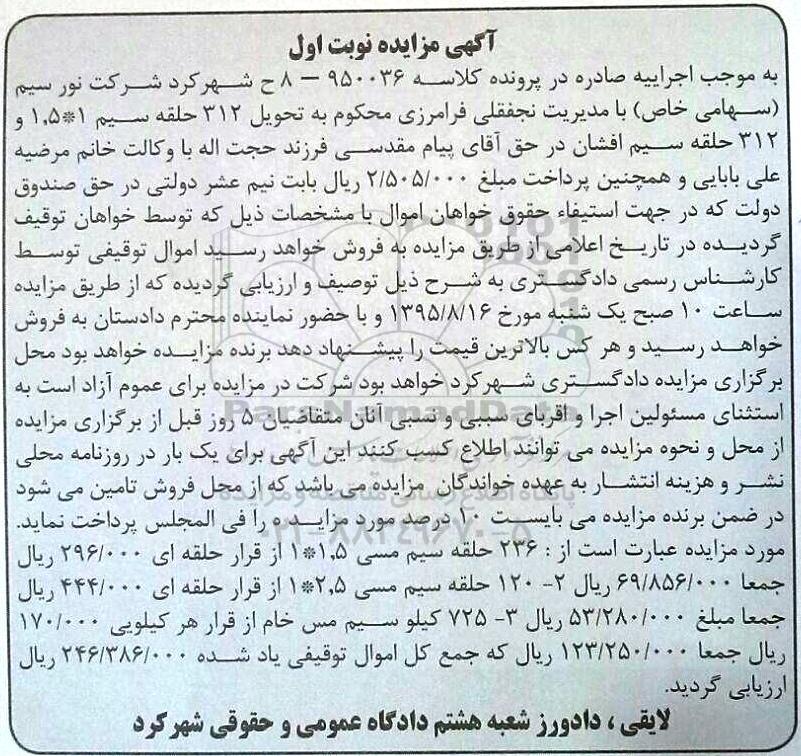 آگهی مزایده نوبت اول
به موجب اجراییه صادره در پرونده کلاسه ۹۵۰۰۳۶ – ۸ ح شهرکرد شرکت نور سیم
(سهامی خاص) با مدیریت نجفقلی فرامرزی محکوم به تحویل ۳۱۲ حلقه سیم ۱*۱,۵ و
۳۱۲ حلقه سیم افشان در حق آقای پیام مقدسی فرزند حجت اله با وکالت خانم مرضیه
علی بابایی و همچنین پرداخت مبلغ ۲/۵۰۵/۰۰۰ ریال بابت نیم عشر دولتی در حق صندوق
دولت که در جهت استیفاء حقوق خواهان اموال با مشخصات ذیل که توسط خواهان توقیف
گردیده در تاریخ اعلامی از طریق مزایده به فروش خواهد رسید اموال توقیفی توسط
کارشناس رسمی دادگستری به شرح ذیل توصیف و ارزیابی گردیده که از طریق مزایده
ساعت ۱۰ صبح یک شنبه مورخ ۱۳۹۵/۸/۱۶ و با حضور نماینده محترم دادستان به فروش
خواهد رسید و هر کس بالاترین قیمت را پیشنهاد دهد برنده مزایده خواهد بود محل
برگزاری مزایده دادگستری شهرکرد خواهد بود شرکت در مزایده برای عموم آزاد است به
استثنای مسئولین اجرا و اقربای سببی و نسبی آنان متقاضیان ۵ روز قبل از برگزاری مزایده
از محل و نحوه مزایده می توانند اطلاع کسب کنند این آگهی برای یک بار در روزنامه محلی
نشر و هزینه انتشار به عهده خواندگان مزایده می باشد که از محل فروش تامین می شود
در ضمن برنده مزایده می بایست ۱۰ درصد مورد مزایده را فی المجلس پرداخت نماید.
مورد مزایده عبارت است از : ۲۳۶ حلقه سیم مسی ۱,۵*۱ از قرار حلقه ای ۲۹۶/۰۰۰ ریال
جمعا ۶۹/۸۵۶/۰۰۰ ریال ۲- ۱۲۰ حلقه سیم مسی ۲,۵*۱ از قرار حلقه ای ۴۴۴/۰۰۰
جمعا مبلغ ۵۳/۲۸۰/۰۰۰ ریال ۳- ۷۲۵ کیلو سیم مس خام از قرار هر کیلویی ۱۷۰/۰۰۰
ریال جمعا ۱۲۳/۲۵۰/۰۰۰ ریال که جمع کل اموال توقیفی یاد شده ۲۴۶/۳۸۶/۰۰۰ ریال
ارزیابی گردید.
لایقی ، دادورز شعبه هشتم دادگاه عمومی و حقوقی شهرکرد
ParsNamadData
پایگاه اطلاع رسانی مناقصه و مزایده
۰۲۱-۸۸۳۴۹۶۷۰-۵